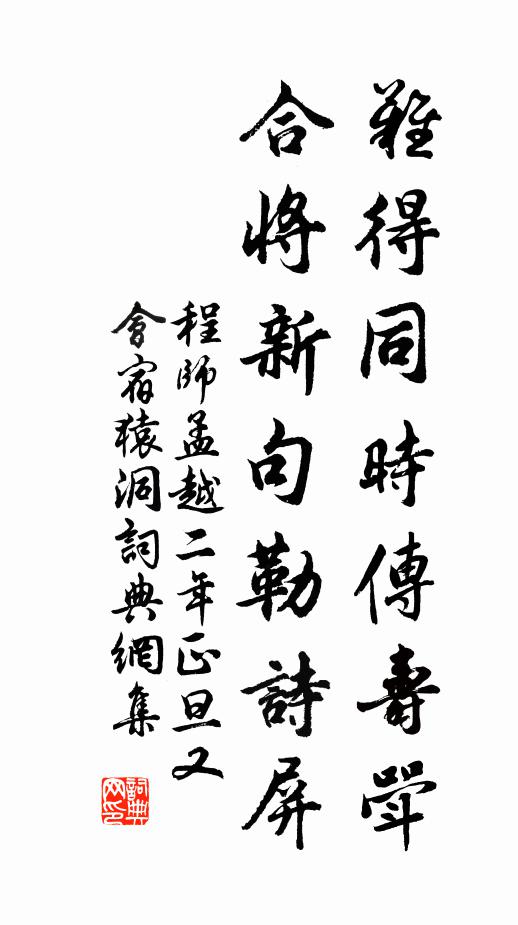 難得同時傳壽斝
合將新句勒詩屏
程師孟越二年正旦又
會宿猿洞詞典網集
詞典網印